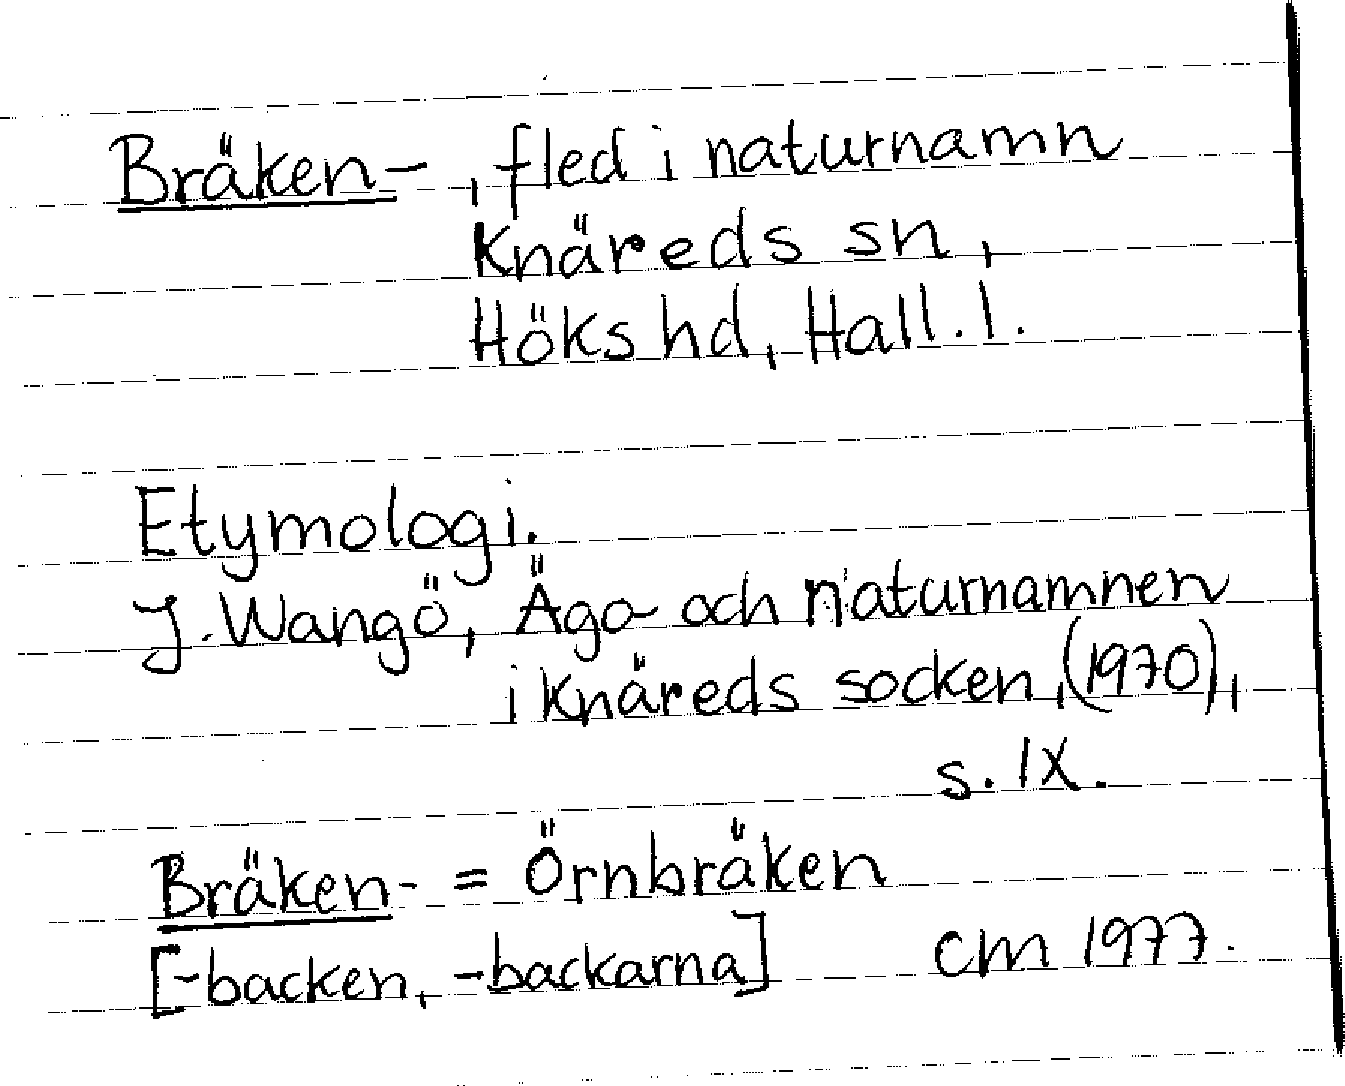 Bräken-, fled i naturnamn
Knäreds sn,
Höks hd, Hall. l.
Etymologi.
J. Wangö, Ägo- och naturnamnen
i Knäreds socken, (1970),
s. IX.
Bräken- = Örnbräken
[-backen, -backarna] CM 1977.